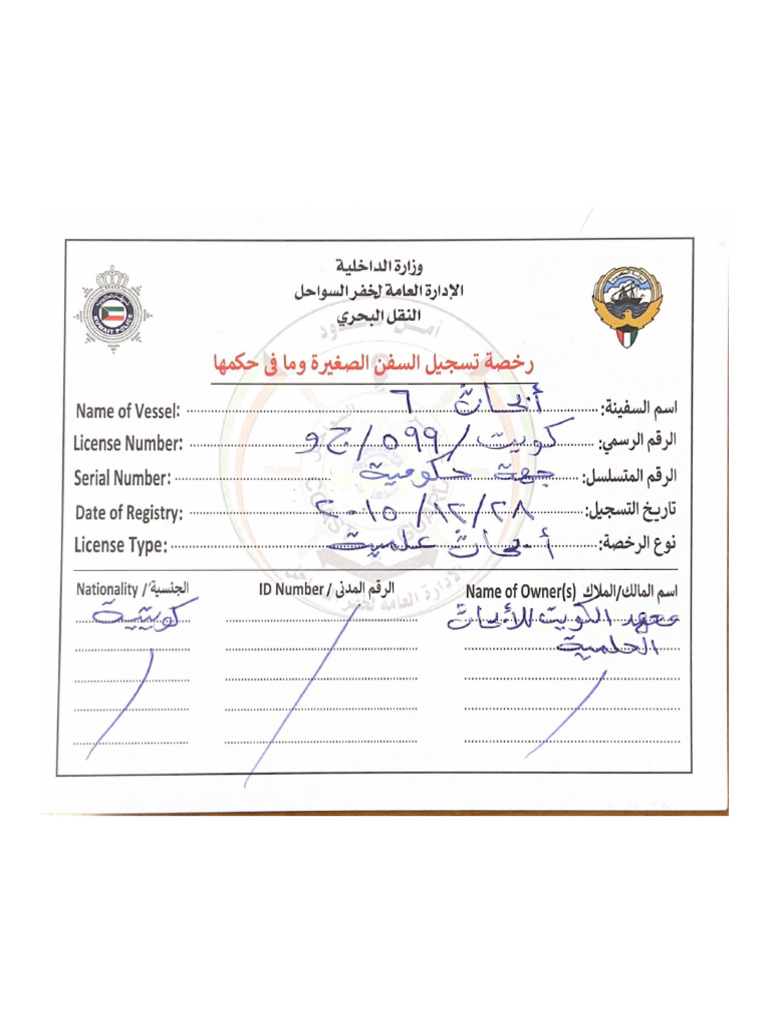 وزارة الداخلية
الإدارة العامة لخفر السواحل
النقل البحري
KUWAIT POLICE
رخصة تسجيل السفن الصغيرة وما فى حكمها
اسم السفينة: أبحاث ٦ Name of Vessel:
الرقم الرسمي: كويت / ٥٩٩ / ج و License Number:
الرقم المتسلسل: جهة حكومية Serial Number:
تاريخ التسجيل: ٢٨ / ١٢ / ٢٠١٥ Date of Registry:
نوع الرخصة: أبحاث علمية License Type:
اسم المالك/الملاك Name of Owner(s) الرقم المدنى / ID Number الجنسية / Nationality
معهد الكويت للأبحاث كويتية
العلمية